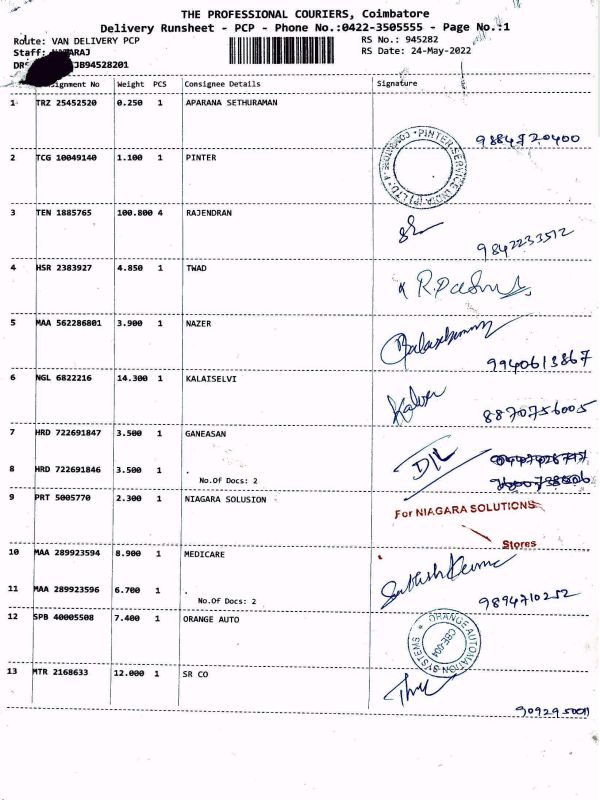 THE PROFESSIONAL COURIERS, Coimbatore
Delivery Runsheet - PCP - Phone No.:0422-3505555 - Page No.:1
Route: VAN DELIVERY PCP
RS No.: 945282
Staff:
RS Date: 24-May-2022
JB94528201
Weight PCS Consignee Details Signature
1 TRZ 25452520 0.250 1 APARANA SETHURAMAN
9884720400
2 TCG 10049140 1.100 1 PINTER
PINTER SERVICE INDIA (P) LTD. COIMBATORE
3 TEN 1885765 100.800 4 RAJENDRAN
9842233512
4 HSR 2383927 4.850 1 TWAD
5 MAA 562286801 3.900 1 NAZER
9940613867
6 NGL 6822216 14.300 1 KALAISELVI
8870756005
7 HRD 722691847 3.500 1 GANEASAN
D/L
8 HRD 722691846 3.500 1 .
No.Of Docs: 2
9 PRT 5005770 2.300 1 NIAGARA SOLUSION
For NIAGARA SOLUTIONS
Stores
10 MAA 289923594 8.900 1 MEDICARE
11 MAA 289923596 6.700 1 .
No.Of Docs: 2
9894710252
12 SPB 40005508 7.400 1 ORANGE AUTO
ORANGE AUTOMATION SYSTEMS
13 MTR 2168633 12.000 1 SR CO